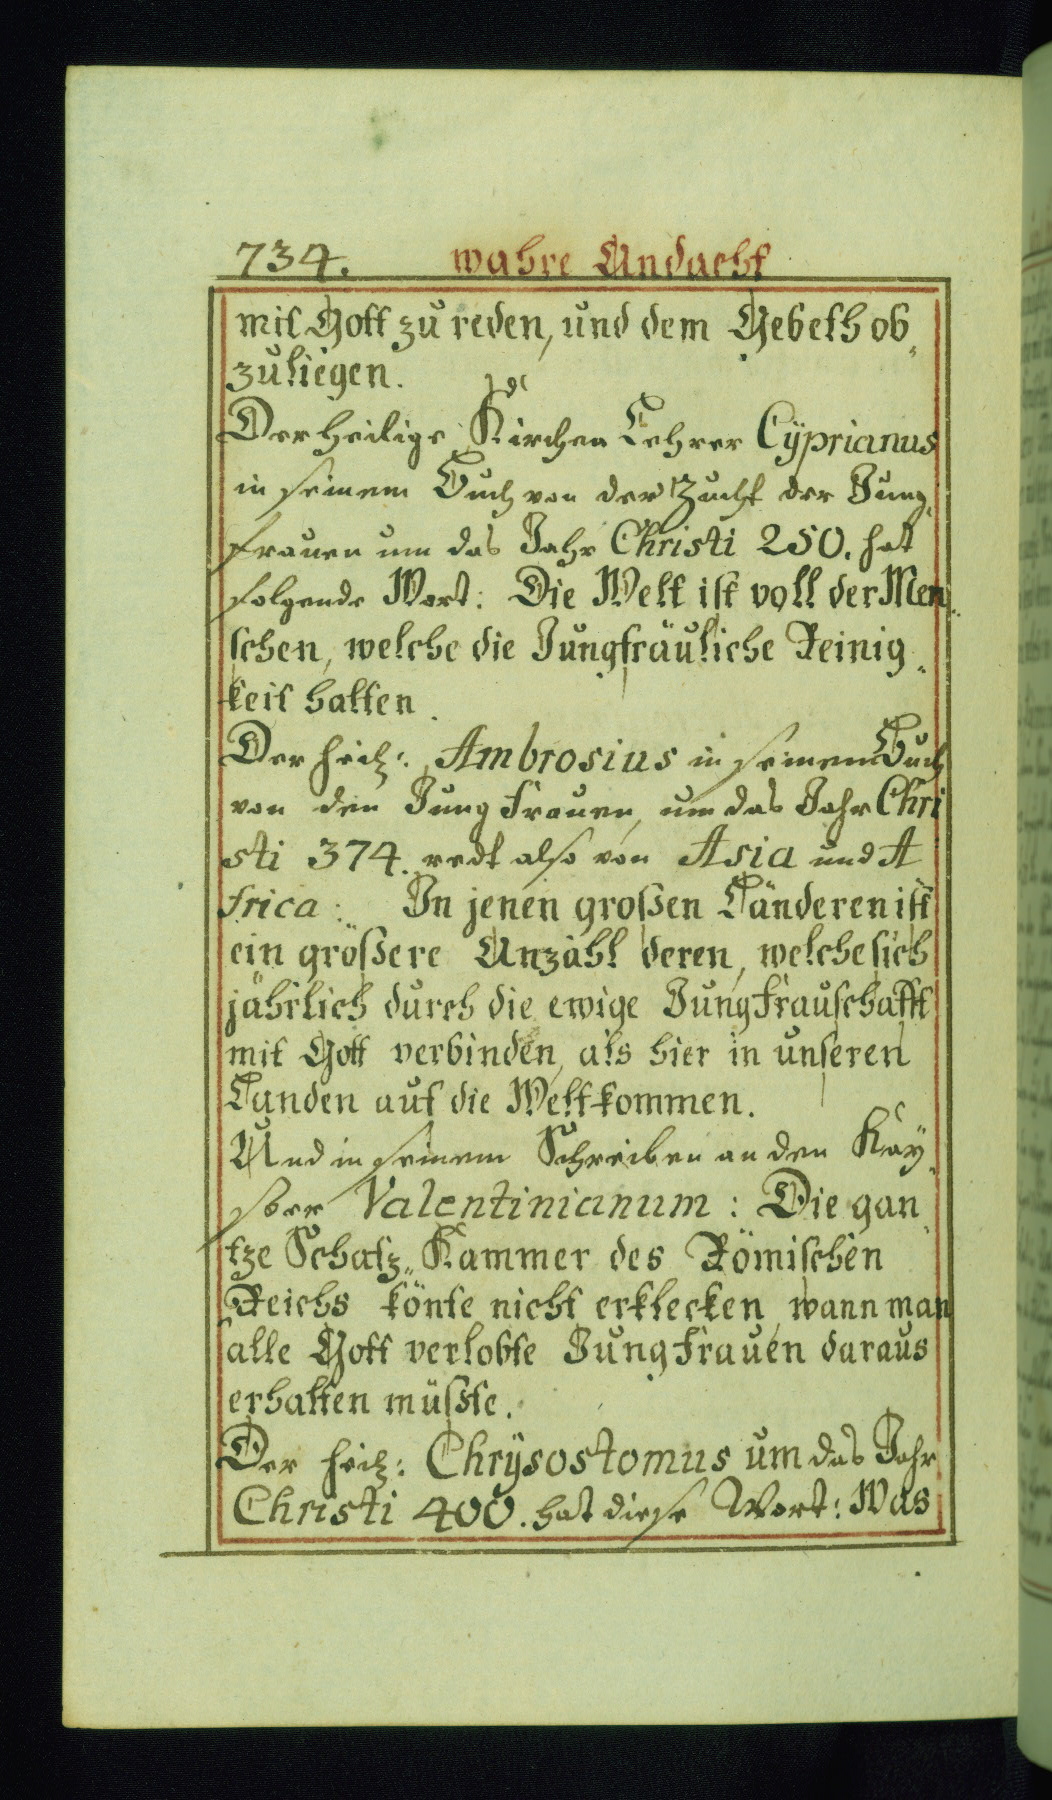 734. wahre Andacht
mit Gott zu reden, und dem Gebeth ob„
zuliegen.
Der heilige Kirchen Lehrer Cÿprianus
in seinem Buch von der Zucht der Jung„
frauen um das Jahr Christi 250. hat
folgende Wort: Die Welt ist voll der Men„
schen, welche die Jungfräuliche Reinig„
keit halten.
Der heil: Ambrosius in seinem Buch
von den Jungfrauen, um das Jahr Chri
sti 374. redt also von Asia und A
frica: In jenen großen Länderen ist
ein größere Anzahl deren, welche sich
jährlich durch die ewige Jungfrauschafft
mit Gott verbinden, als hier in unseren
Landen auf die Welt kommen.
Und in seinem Schreiben an den Kaÿ„
ser Valentinianum: Die gan„
tze Schatz„Kammer des Römischen
Reichs könte nicht erklecken, wann man
alle Gott verlobte Jungfrauen daraus
erhalten müßte.
Der heil: Chrÿsostomus um das Jahr
Christi 400. hat diese Wort: Was